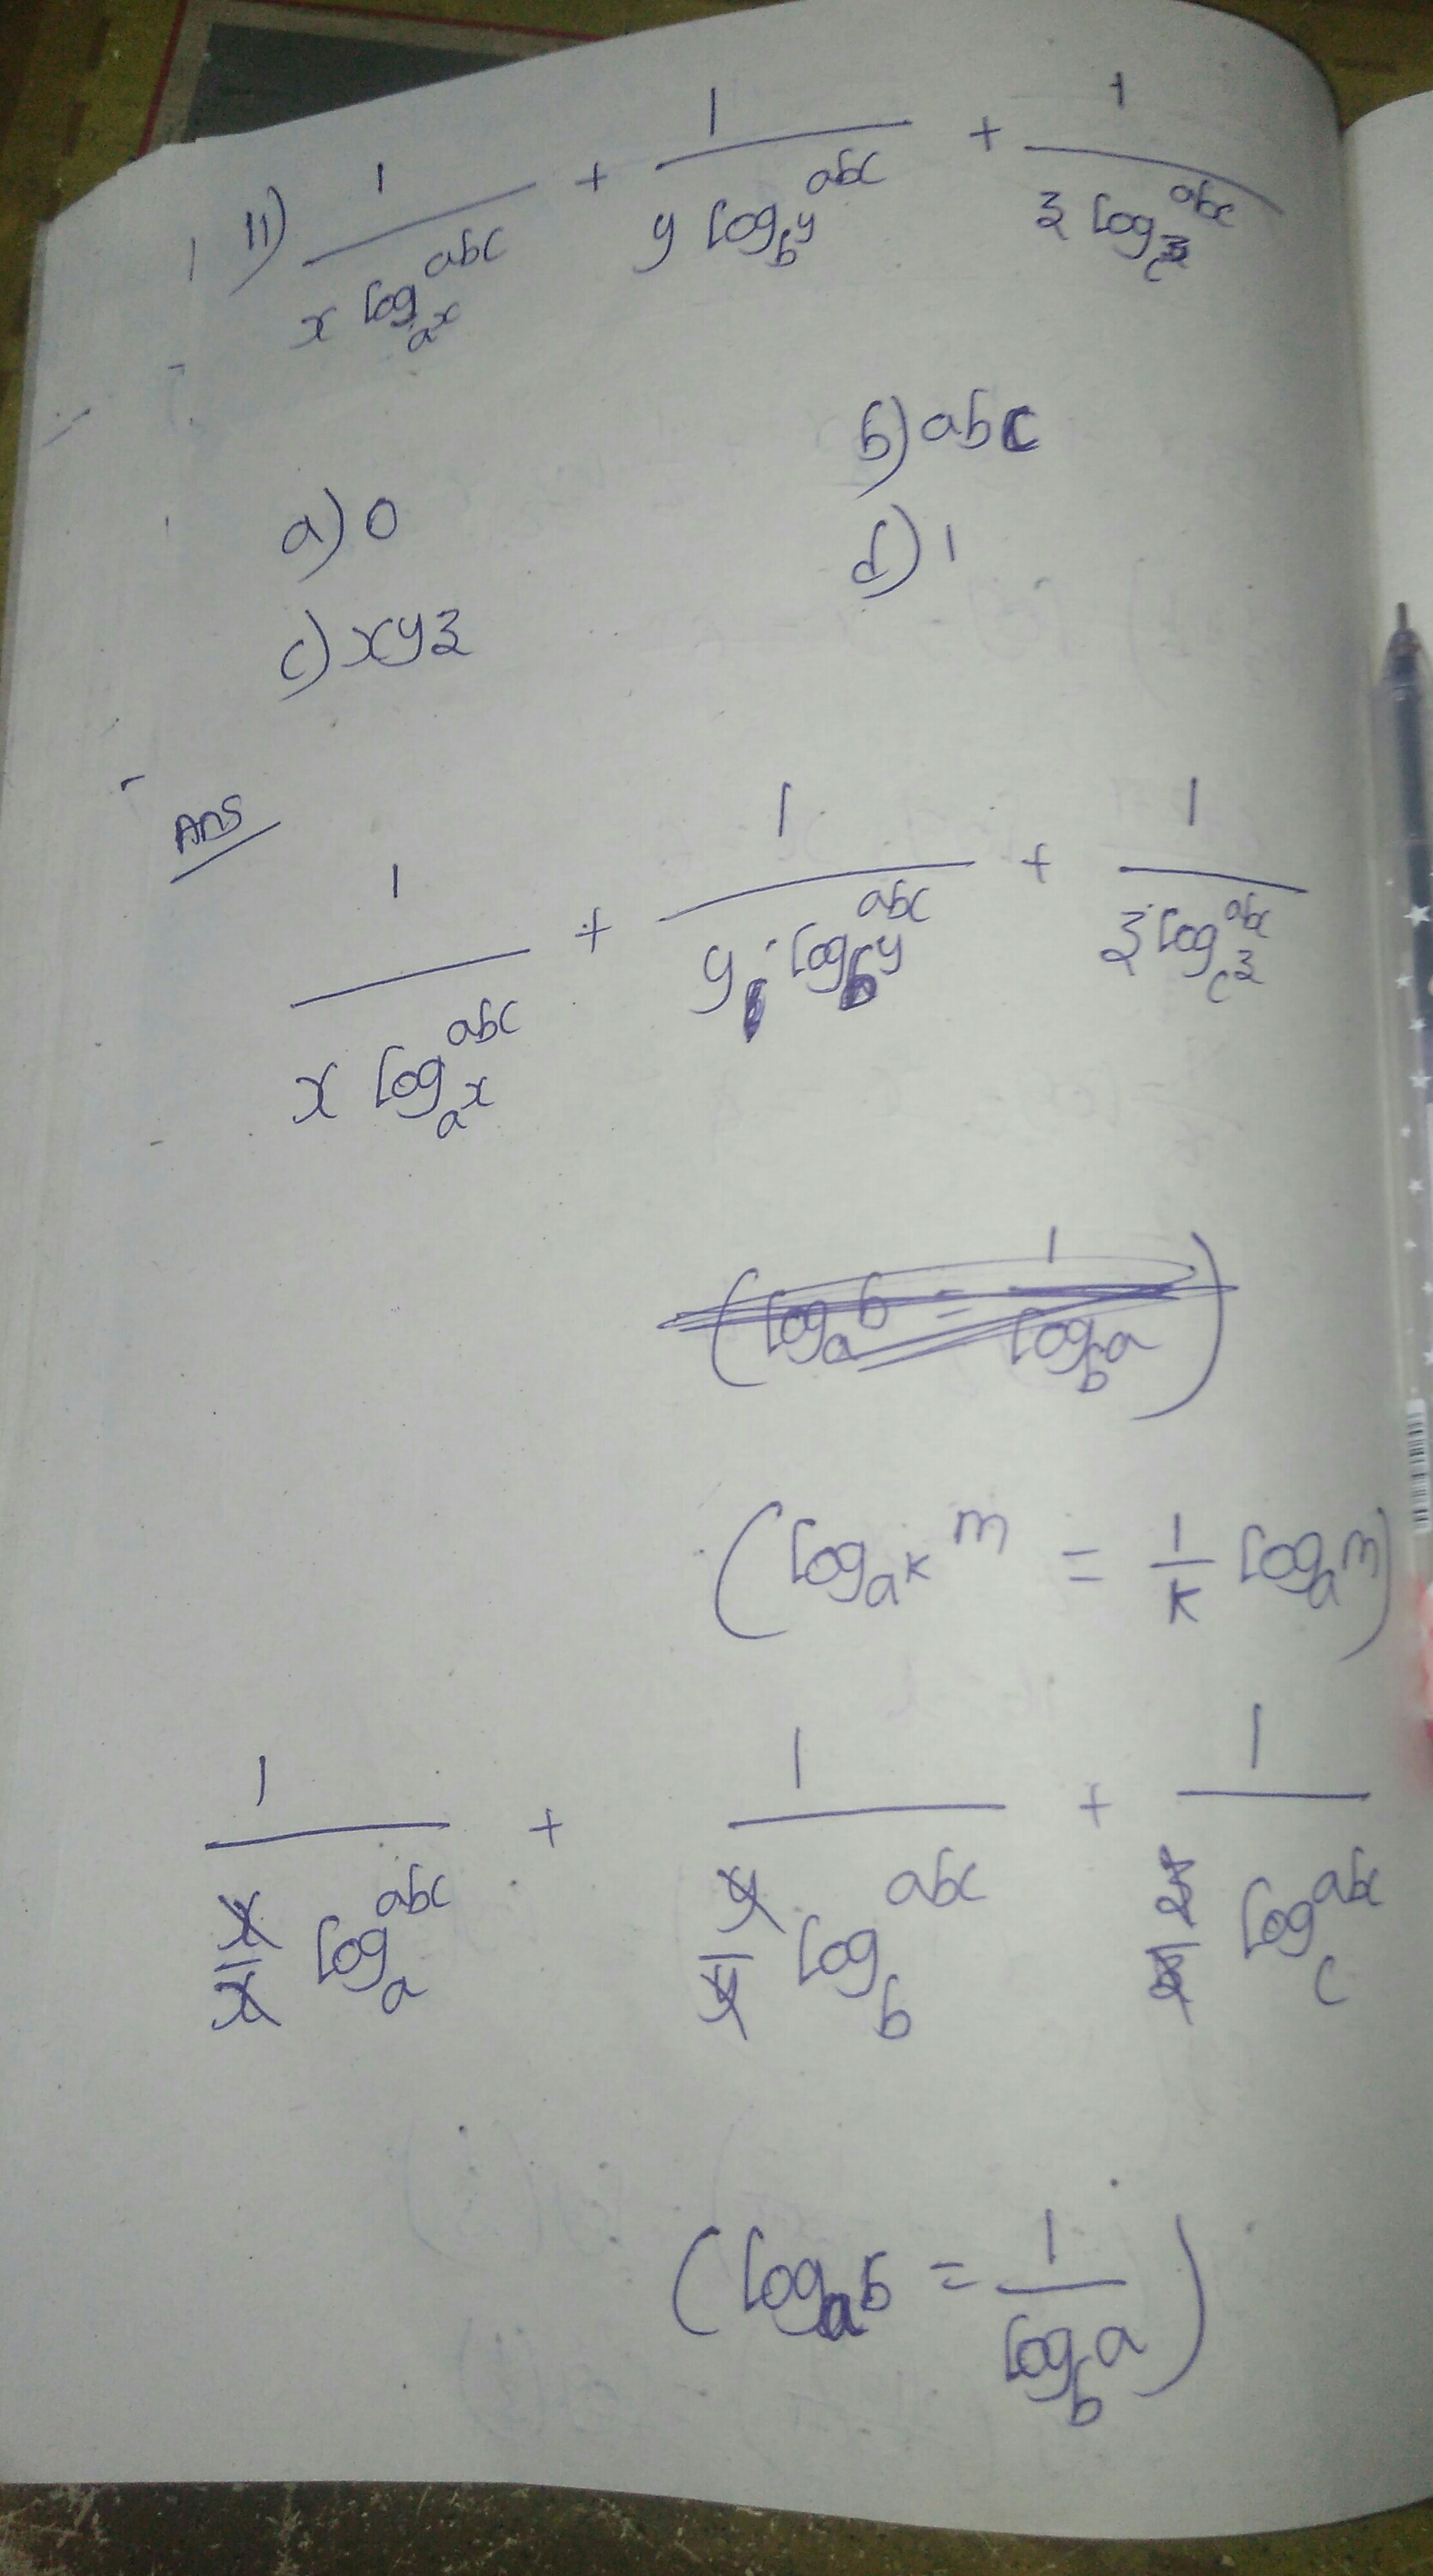 11) 1/(x log_{a^x} abc) + 1/(y log_{b^y} abc) + 1/(z log_{c^z} abc)
a) 0 b) abc
c) xyz d) 1
Ans
1/(x log_{a^x} abc) + 1/(y · log_{b^y} abc) + 1/(z log_{c^z} abc)
(log_a b = 1/(log_b a))
(log_{a^k} m = 1/k log_a m)
1/(x/x log_a abc) + 1/(y/y log_b abc) + 1/(z/z log_c abc)
(log_a b = 1/(log_b a))